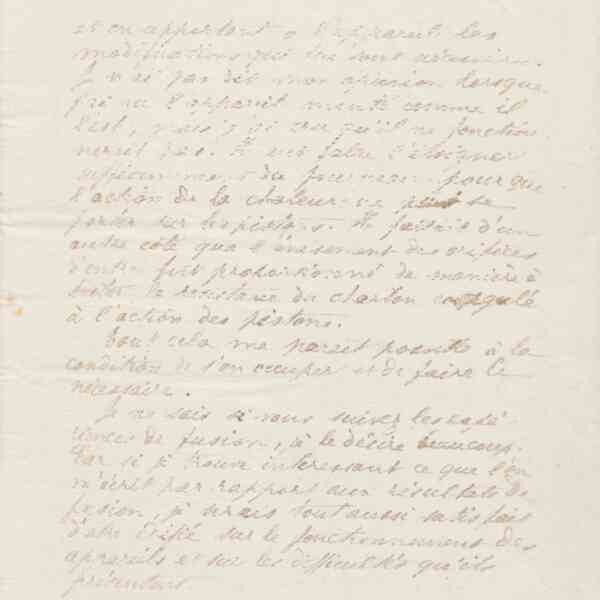 et en apportant à l'appareil les
modifications qui lui sont nécessaires.
Je n'ai pas dit mon opinion lorsque
j'ai vu l'appareil monté comme il
l'est, mais j'ai cru qu'il ne fonction
nerait pas. Il eut fallu l'éloigner
du pour que
l'action de la chaleur ne put se
porter sur les pistons. Il fallait d'un
autre côté que l'évasement des orifices
d'entrée fut proportionné de manière à
la résistance du charbon coagulé
à l'action des pistons.
Tout cela me parait possible à la
condition de s'en occuper et de faire le
nécessaire.
Je ne sais si vous suivez les expé
riences de fusion, je le désire beaucoup.
Car si je trouve intéressant ce que l'on
m'écrit par rapport aux résultats de
fusion, je serais tout aussi satisfait
d'être édifié sur le fonctionnement des
appareils et sur les difficultés qu'ils
présentent.